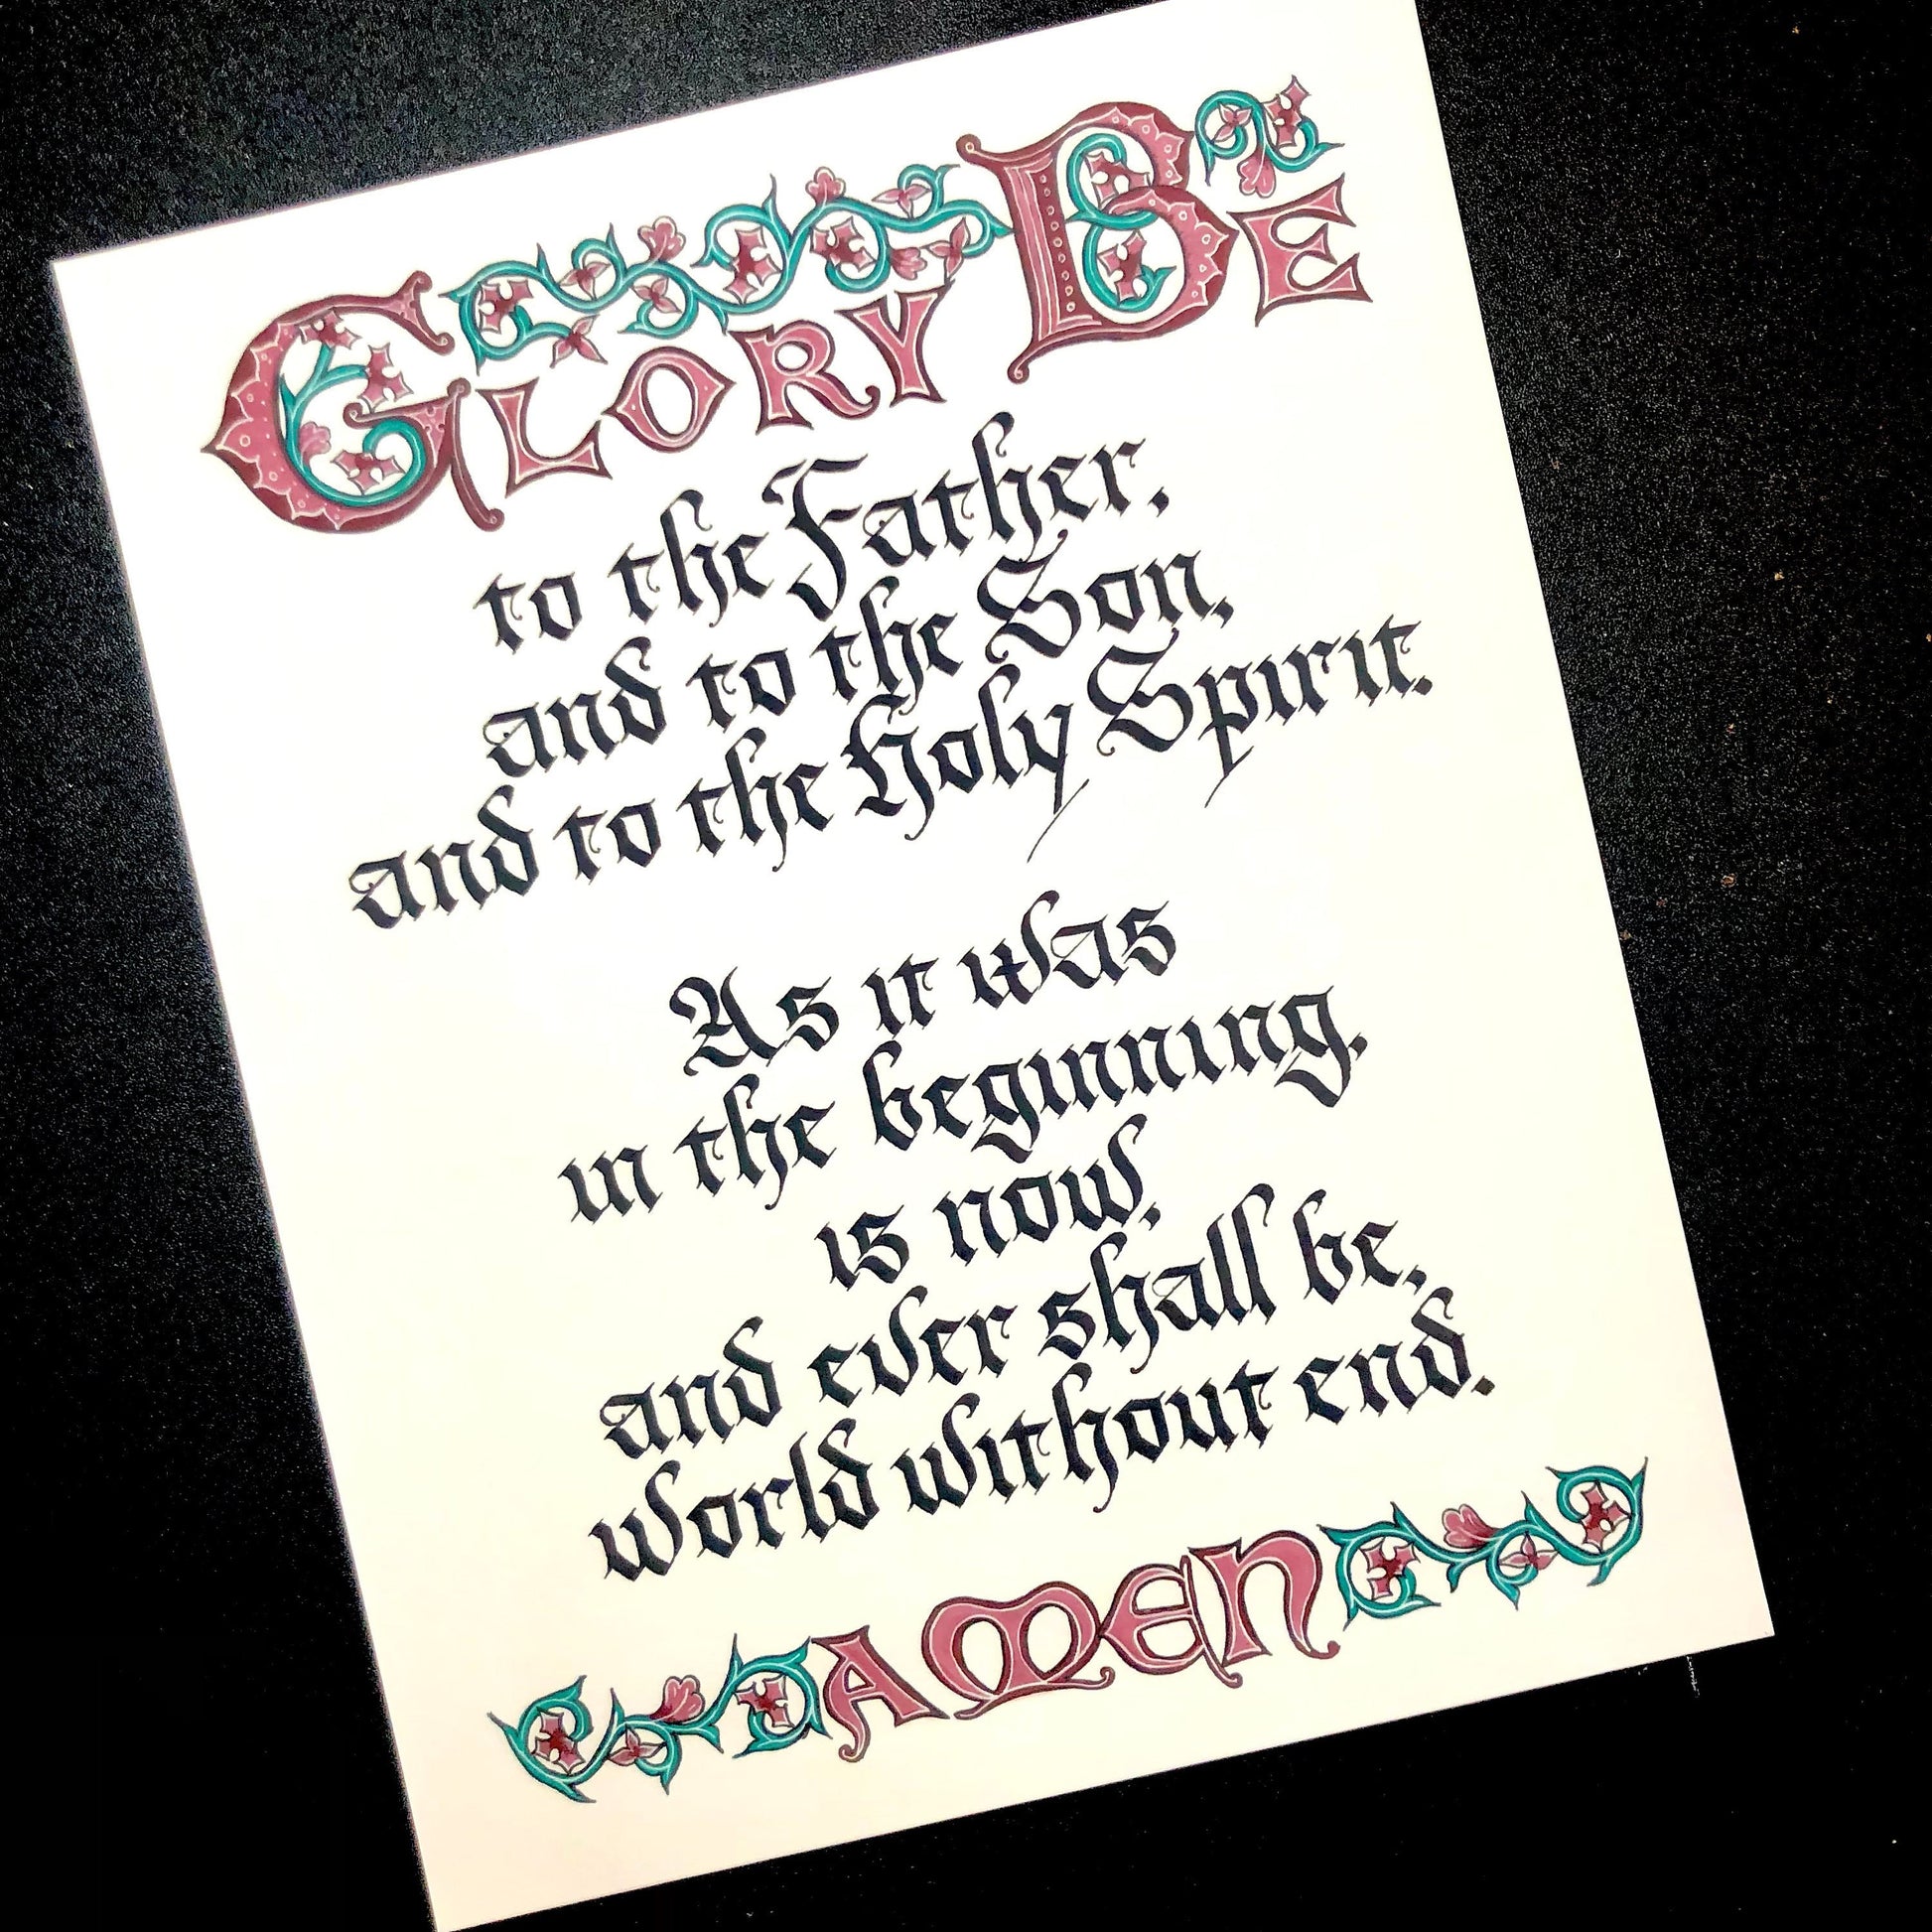 GLORY BE
to the Father,
and to the Son,
and to the Holy Spirit.
As it was
in the beginning,
is now,
and ever shall be,
world without end.
AMEN